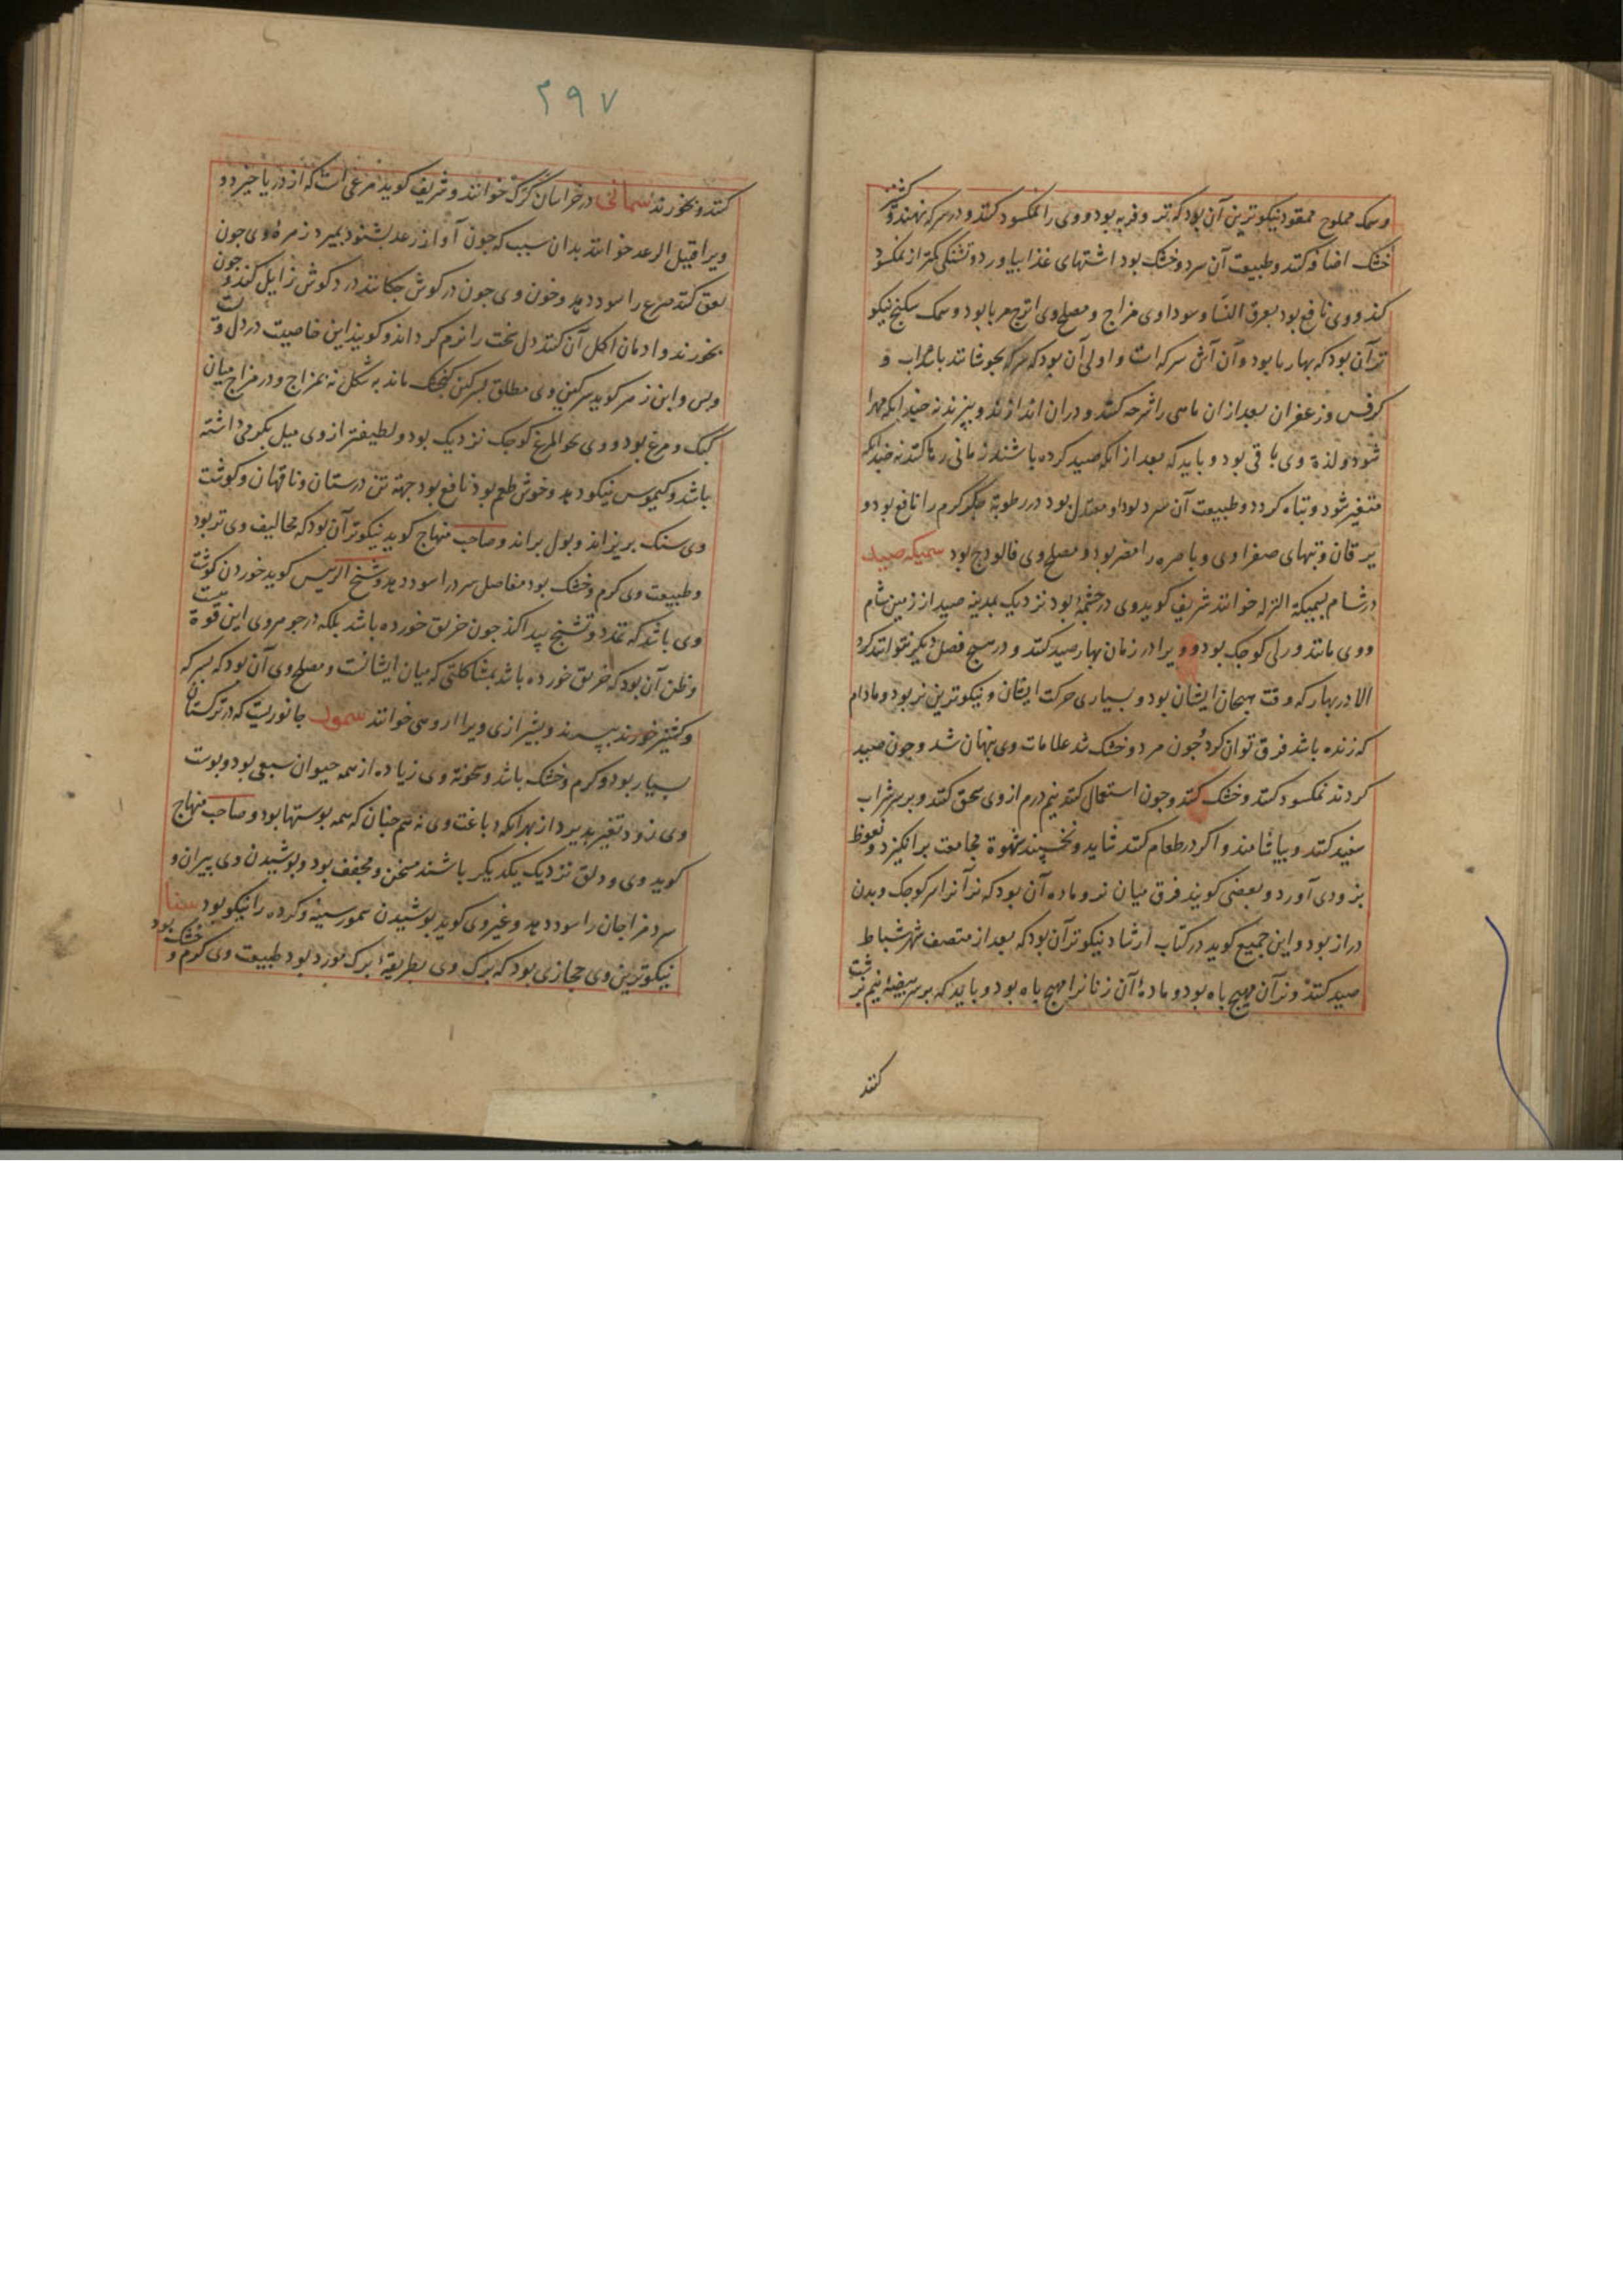 و سمک مملوح ممقود نیکوترین آن بود که تر و فربه بود و وی را نمکسود کنند و در سرکه نهند و کشنیز
خشک اضافه کنند و طبیعت آن سرد و خشک بود اشتهای غذا بیاورد و تشنکی کمتر از نمکسود
کند و وی نافع بود بعرق النسا و سوداوی مزاج و مصلح وی اترج مربا بود و سمک سکنج نیکو
تر آن بود که بهاریا بود و آن آش سرکه است و اولی آن بود که سرکه بجوشانند با سداب و
کرفس و زعفران بعد از ان ماهی را شرحه کنند و دران اندازند و بپزند نه چندانکه مهرا
شود و لذة وی باقی بود و باید که بعد از انکه صید کرده باشند زمانی رها کنند نه چندانکه
متغیر شود و تباه کردد و طبیعت آن سرد بود و معتدل بود در رطوبة جکر کرم را نافع بود و
یرقان و تبهای صفراوی و باصره را مضر بود و مصلح وی فالودج بود سمیکه صیدا
در شام سمیکة النزله خوانند شریف کوید وی در چشمهٔ بود نزدیک بمدینه صیدا از زمین شام
و وی مانند ورلی کوجک بود و ویرا در زمان بهار صید کنند و در هیچ فصل دیکر نتوانند کرد
الا در بهار که وقت هیجان ایشان بود و بسیاری حرکت ایشان و نیکوترین نر بود و مادام
که زنده باشد فرق توان کرد و جون مرد و خشک شد علامات وی پنهان شد و جون صید
کردند نمکسود کنند و خشک کنند و جون استعمال کنند نیم درم از وی سحق کنند و بر سر شراب
سفید کنند و بیاشامند و اکر در طعام کنند شاید و نخسپند شهوة مجامعت برانکیزد و نعوظ
بزودی آورد و بعضی کویند فرق میان نر و ماده آن بود که نر آنرا سر کوجک و بدن
دراز بود و ابن جمیع کوید در کتاب ارشاد نیکوتر آن بود که بعد از منتصف شهر شباط
صید کنند و نر آن مهیج باه بود و مادهٔ آن زنانرا مهیج باه بود و باید که بر سر بیضهٔ نیم برشت
کنند
۲۹۷
کنند و بخورند سمانی در خراسان کرک خوانند و شریف کوید مرغی است که از دریا خیزد و
ویرا قتیل الرعد خوانند بدان سبب که جون آواز رعد بشنود بمیرد زهرهٔ وی جون
لعق کنند صرع را سود دهد و خون وی جون در کوش جکانند درد کوش زایل کند و جون
بخورند و ادمان اکل آن کنند دل سخت را نرم کرداند و کویند این خاصیت در دل وی است
و بس و ابن زهر کوید سرکین وی مطلق بسرکین کنجشک ماند به شکل نه بمزاج و در مزاج میان
کبک و مرغ بود و وی نحو المرغ کوجک نزدیک بود و لطیفتر از وی میل بکرمی داشته
باشد و کیموس نیکو دهد و خوش طعم بود نافع بود جهة تن درستان و ناقهان و کوشت
وی سنک بریزاند و بول براند و صاحب منهاج کوید نیکوتر آن بود که مخالیف وی تر بود
و طبیعت وی کرم و خشک بود مفاصل سرد را سود دهد و شیخ الرییس کوید خوردن کوشت
وی باشد که تمدد و تشنج پیدا کند جون خربق خورده باشد بلکه در جوهر وی این قوة هست
و ظن آن بود که خربق خورده باشد بمشاکلتی که میان ایشانست و مصلح وی آن بود که بسرکه
و کشنیز خورند بپزند و بشیرازی ویرا اردسی خوانند سمور جانوریست که در ترکستان
بسیار بود و کرم و خشک باشد و سخونة وی زیاده از همه حیوان سبعی بود و پوست
وی زود تغیر پذیرد از بهر آنکه دباغت وی نه هم جنان که همه پوستها بود و صاحب منهاج
کوید وی و دلق نزدیک یکدیکر باشند مسخن و مجفف بود و پوشیدن وی پیران و
سرد مزاجان را سود دهد و غیر وی کوید پوشیدن سمور سینه و کرده را نیکو بود سنا
نیکوترین وی حجازی بود که برک وی بطریقهٔ برک مورد بود طبیعت وی کرم و خشک بود